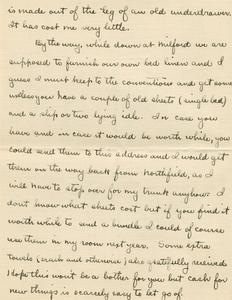 is made out of the leg of an old underdrawer.
It has cost me very little.
By the way, while down at Milford we are
supposed to furnish our own bed linen and I
guess I must keep to the conventions and get some
unless you have a couple of old sheets (single bed)
and a slip or two lying idle. In case you
have and in case it would be worth while, you
could send them to this address and I would get
them on the way back from Northfield, as I
will have to stop over for my trunk anyhow. I
don't know what sheets cost but if you find it
worth while to send a bundle I could of course
use them in my room next year. Some extra
towels (crash and otherwise) also gratefully received
I hope this won't be a bother for you but cash for
new things is scarcely easy to let go of.